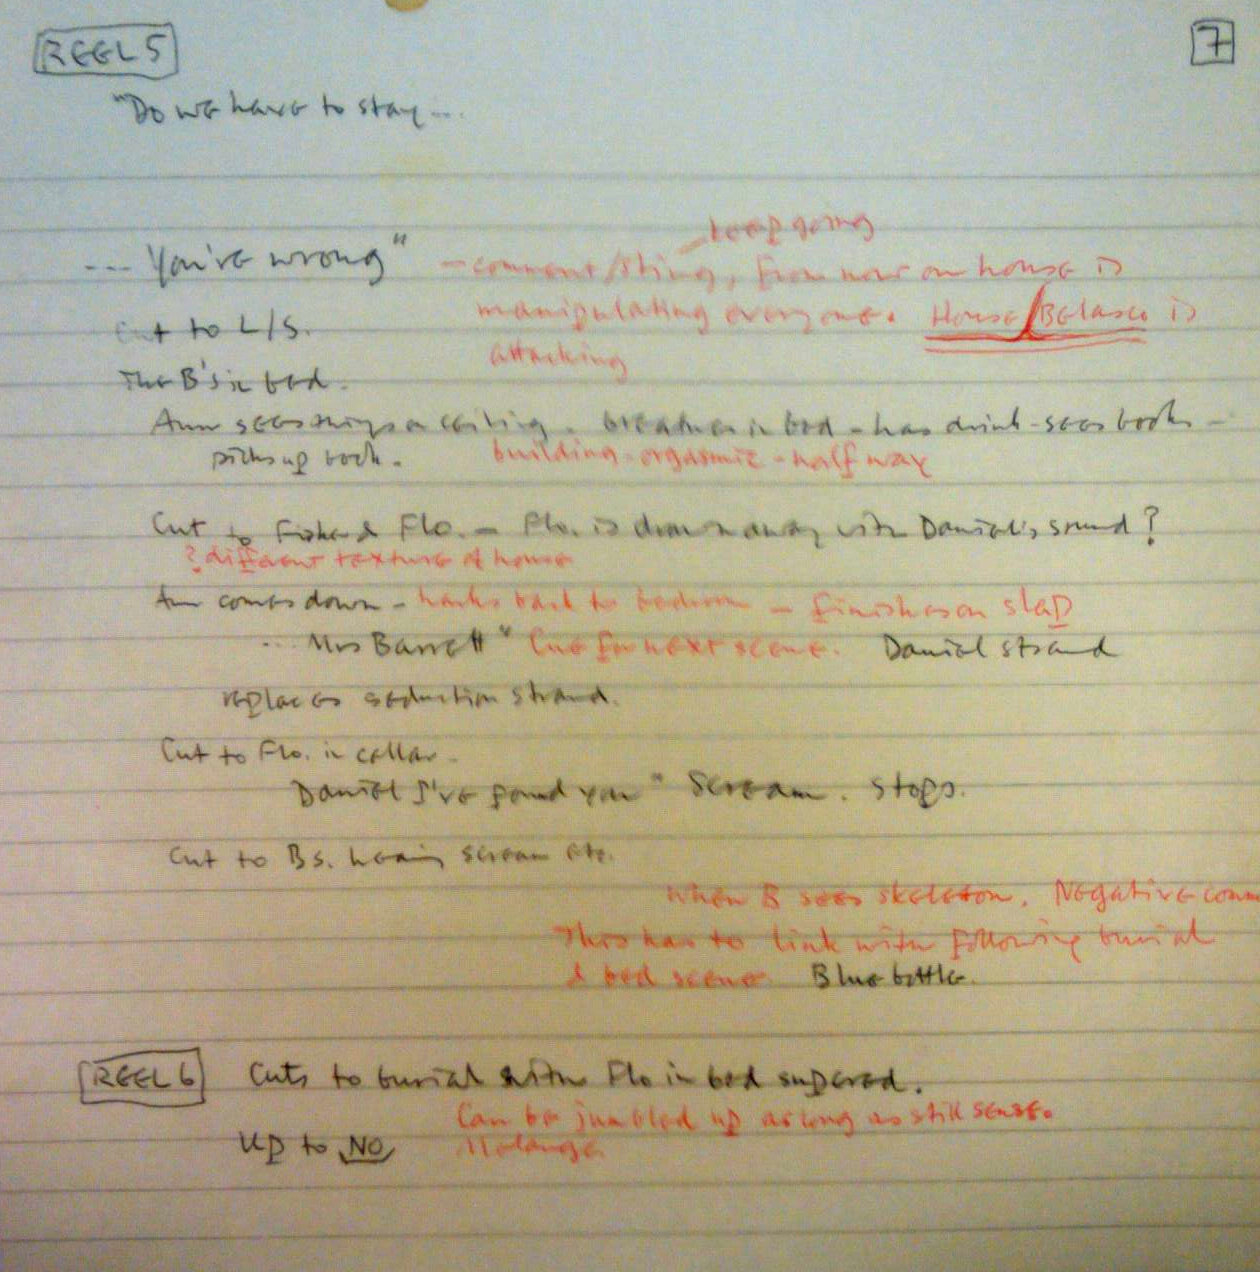 REEL 5
7
"Do we have to stay...
keep going
--- You're wrong" - comment/sting, from now on house is
manipulating everyone. House/Belasco is
cut to L/S.
attacking
The B's in bed.
Ann sees things on ceiling - breather in bed - has drink - sees books -
picks up book. building - orgasmic - half way
Cut to Fisher & Flo. - Flo. is drawn away with Daniel's sound?
? different texture of house
Ann comes down - harks back to bedroom - finishes on slap
... Mrs Barrett" Cue for next scene. Daniel strand
replaces seduction strand.
Cut to Flo. in cellar.
Daniel I've found you" Scream. Stops.
Cut to Bs. hearing scream etc.
When B sees skeleton. Negative comm
This has to link with following burial
& bed scene. Bluebottle.
REEL 6 Cuts to burial with Flo in bed supered.
Can be jumbled up as long as still sense.
Up to NO Melange